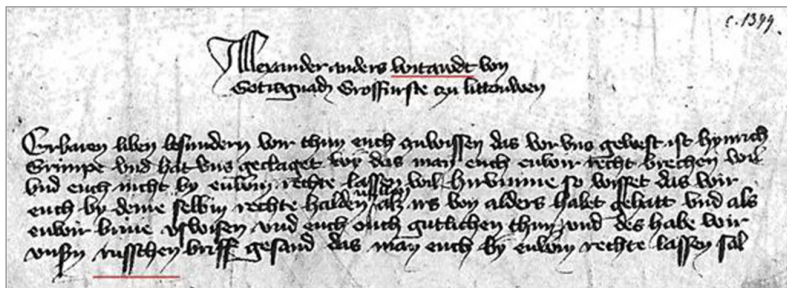 c. 1399.
Allexander anders witawdt von
Gotisgnadn Grosfurste czu littouwen
Erbaren liben besundern wir thun euch czuwissen das vor vns gewest ist hynrich
Grimpe vnd hat vns geclaget wy das man euch euwir recht brechen wil
vnd euch nicht by euwirm rechte lassen wil hirumme so wisset das wir
euch by deme selbin rechte halden als irs von alders habet gehatt vnd als
euwir brive vswisen vnd euch ouch gutlichen thun vnd des habe wir
vnsirn russchen briff gesand das man euch by euwirm rechte lassen sal